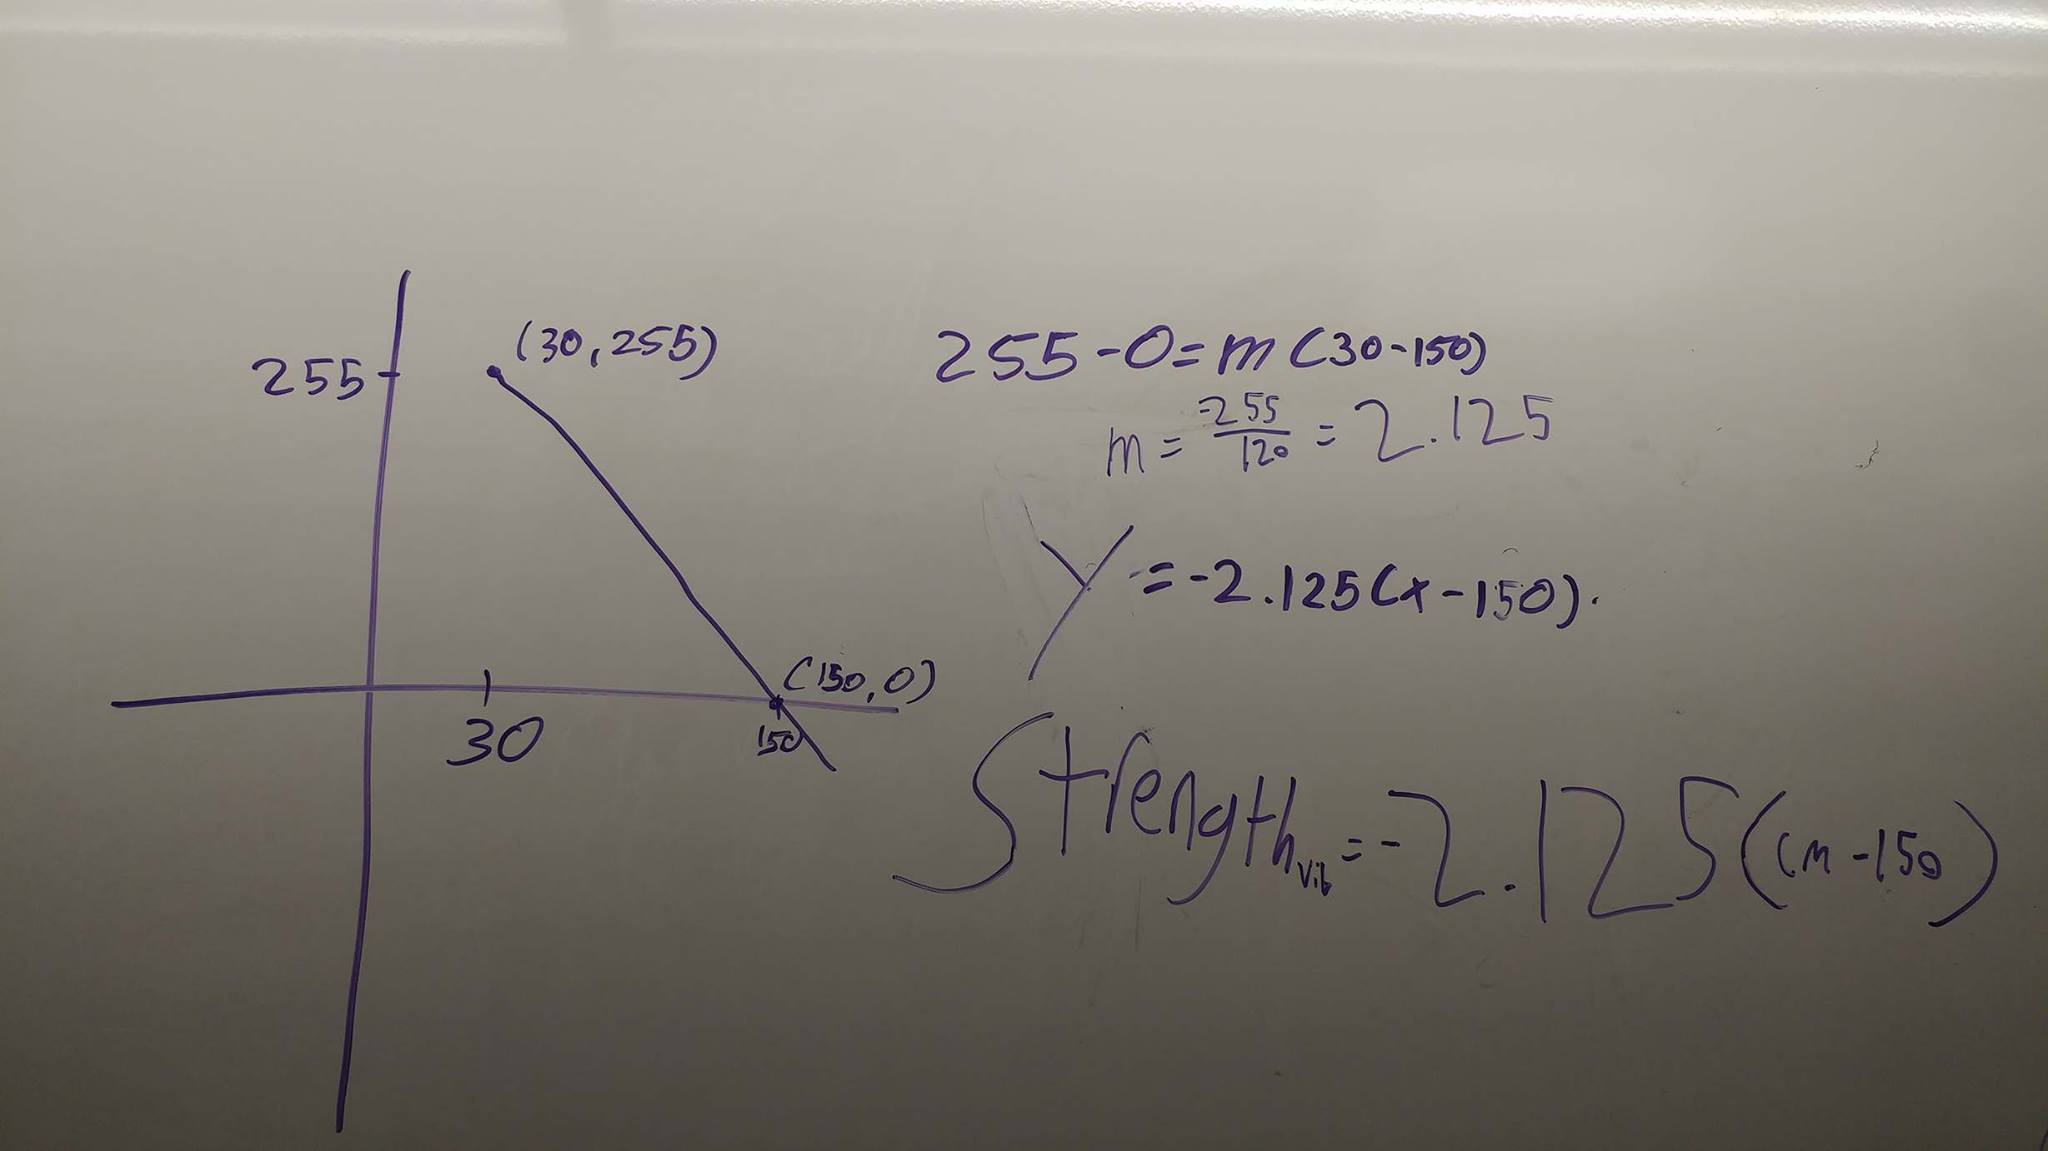 (30, 255)
255
(150, 0)
30
150
255 - 0 = m (30 - 150)
m = -255/120 = 2.125
Y = -2.125 (x - 150).
Strength vib = -2.125 (cm - 150)